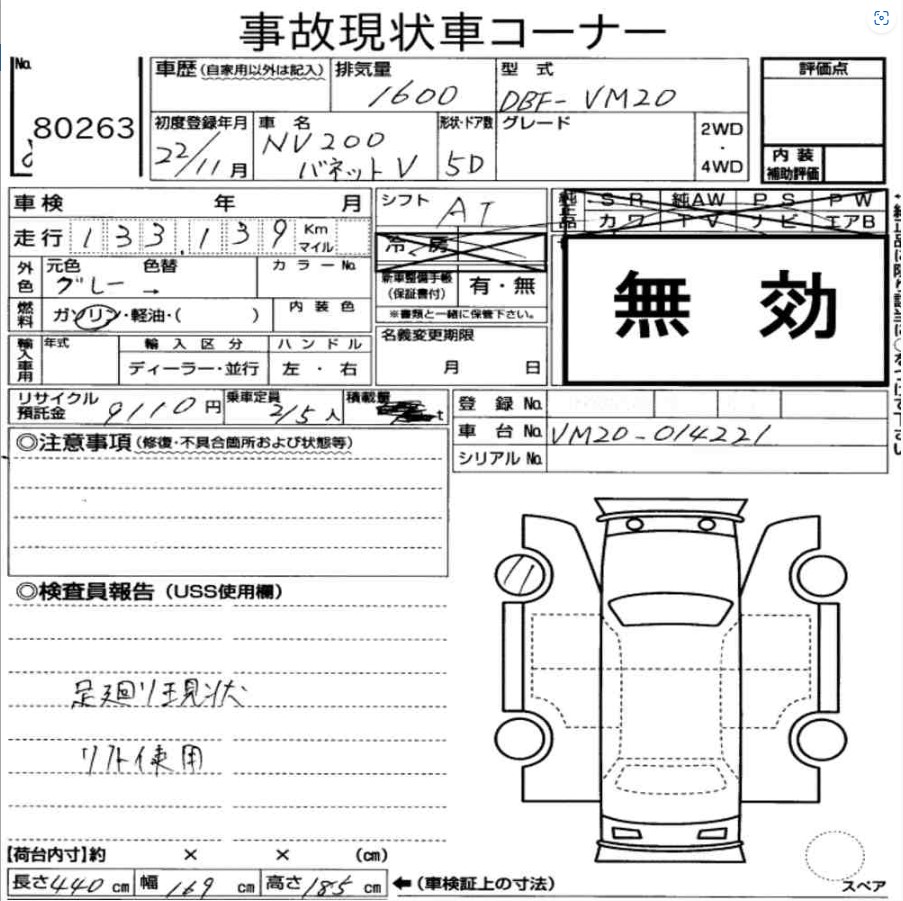 事故現状車コーナー
No.
80263
車歴(自家用以外は記入)
排気量
1600
型 式
DBF-VM20
評価点
初度登録年月
22/11月
車 名
NV200
バネットV
形状・ドア数
5D
グレード
2WD
・
4WD
内 装
補助評価
車検 年 月
シフト
AT
純正品
SR 純AW PS PW
カワ TV ナビ エアB
走行 133,139 Km
マイル
冷 房
無 効
外色
元色 色替 カラーNo.
グレー →
新車整備手帳
(保証書付)
有・無
※書類と一緒に保管下さい。
燃料
ガソリン・軽油・( )
内 装 色
名義変更期限
月 日
輸入車用
年式
輸 入 区 分
ハ ン ド ル
ディーラー・並行
左 ・ 右
リサイクル
預託金
9110円
乗車定員
2/5人
積載量
t
登 録 No.
車 台 No. VM20-014221
シリアル No.
◎注意事項(修復・不具合箇所および状態等)
◎検査員報告(USS使用欄)
足廻り現状
リフト使用
【荷台内寸】約 × × (cm)
長さ440cm 幅169cm 高さ185cm ←(車検証上の寸法)
スペア